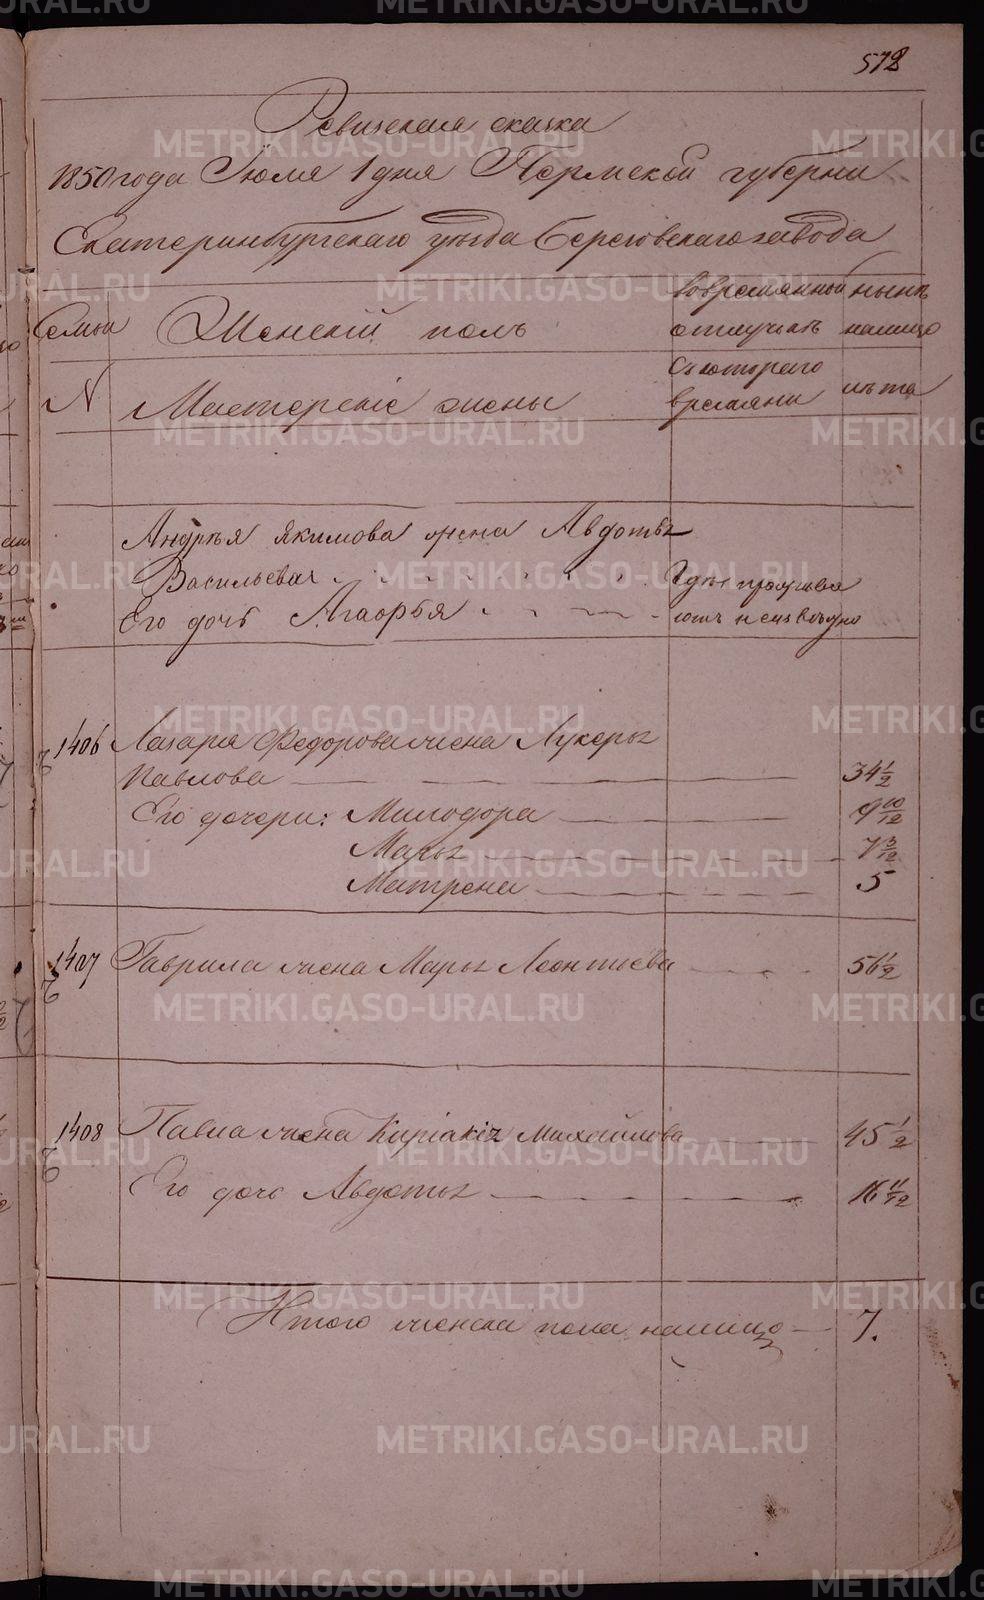 572
Ревизская сказка
1850 года Іюля 1 дня Пермской губернии
Екатеринбургскаго уѣзда Березовскаго завода
Семьи
Женскій полъ
Во временной отлучкѣ
нынѣ налицо
N
Мастерскіе жены
Съ котораго времяни
лѣта
Андрѣя Якимова жена Авдотья
Васильева
Гдѣ прожива
Его дочь Агаѳрья
ютъ неизвѣсдно
1406 Лазаря Федорова жена Лукерья
Павлова 34 1/2
Его дочери: Милодора 9 10/12
Марья 7 3/12
Матрена 5
1407 Гаврила жена Марья Леонтьева 56 1/2
1408 Павла жена Киріакія Михайлова 45 1/2
Его дочь Авдотья 16 11/12
Итого женска пола налицо 7.
METRIKI.GASO-URAL.RU